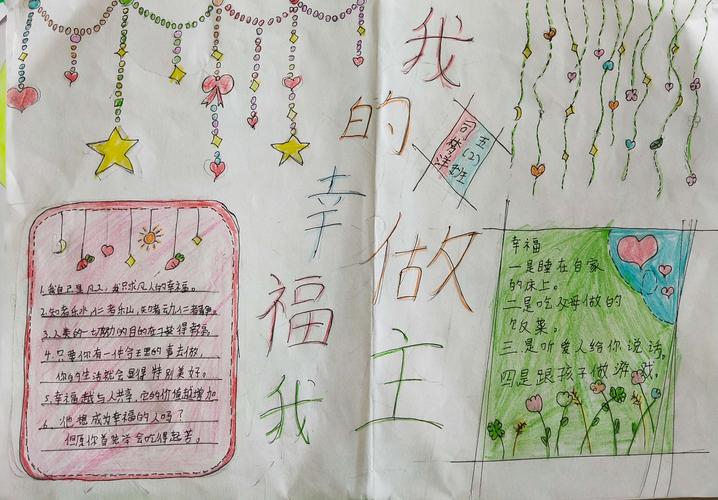 我的幸福我做主
五(2)班
司梦洋
1.我自己是凡人,我只求凡人的幸福。
2.知者乐水,仁者乐山,知者动,仁者静。
3.人类的一切努力的目的在于获得幸福
4.只要你有一件合理的事去做,
你的生活就会显得特别美好。
5.幸福越与人共享,它的价值越增加
6.你想成为幸福的人吗?
但愿你首先学会吃得起苦。
幸福
一是睡在自家
的床上。
二是吃父母做的
饭菜。
三.是听爱人给你说话。
四是跟孩子做游戏。